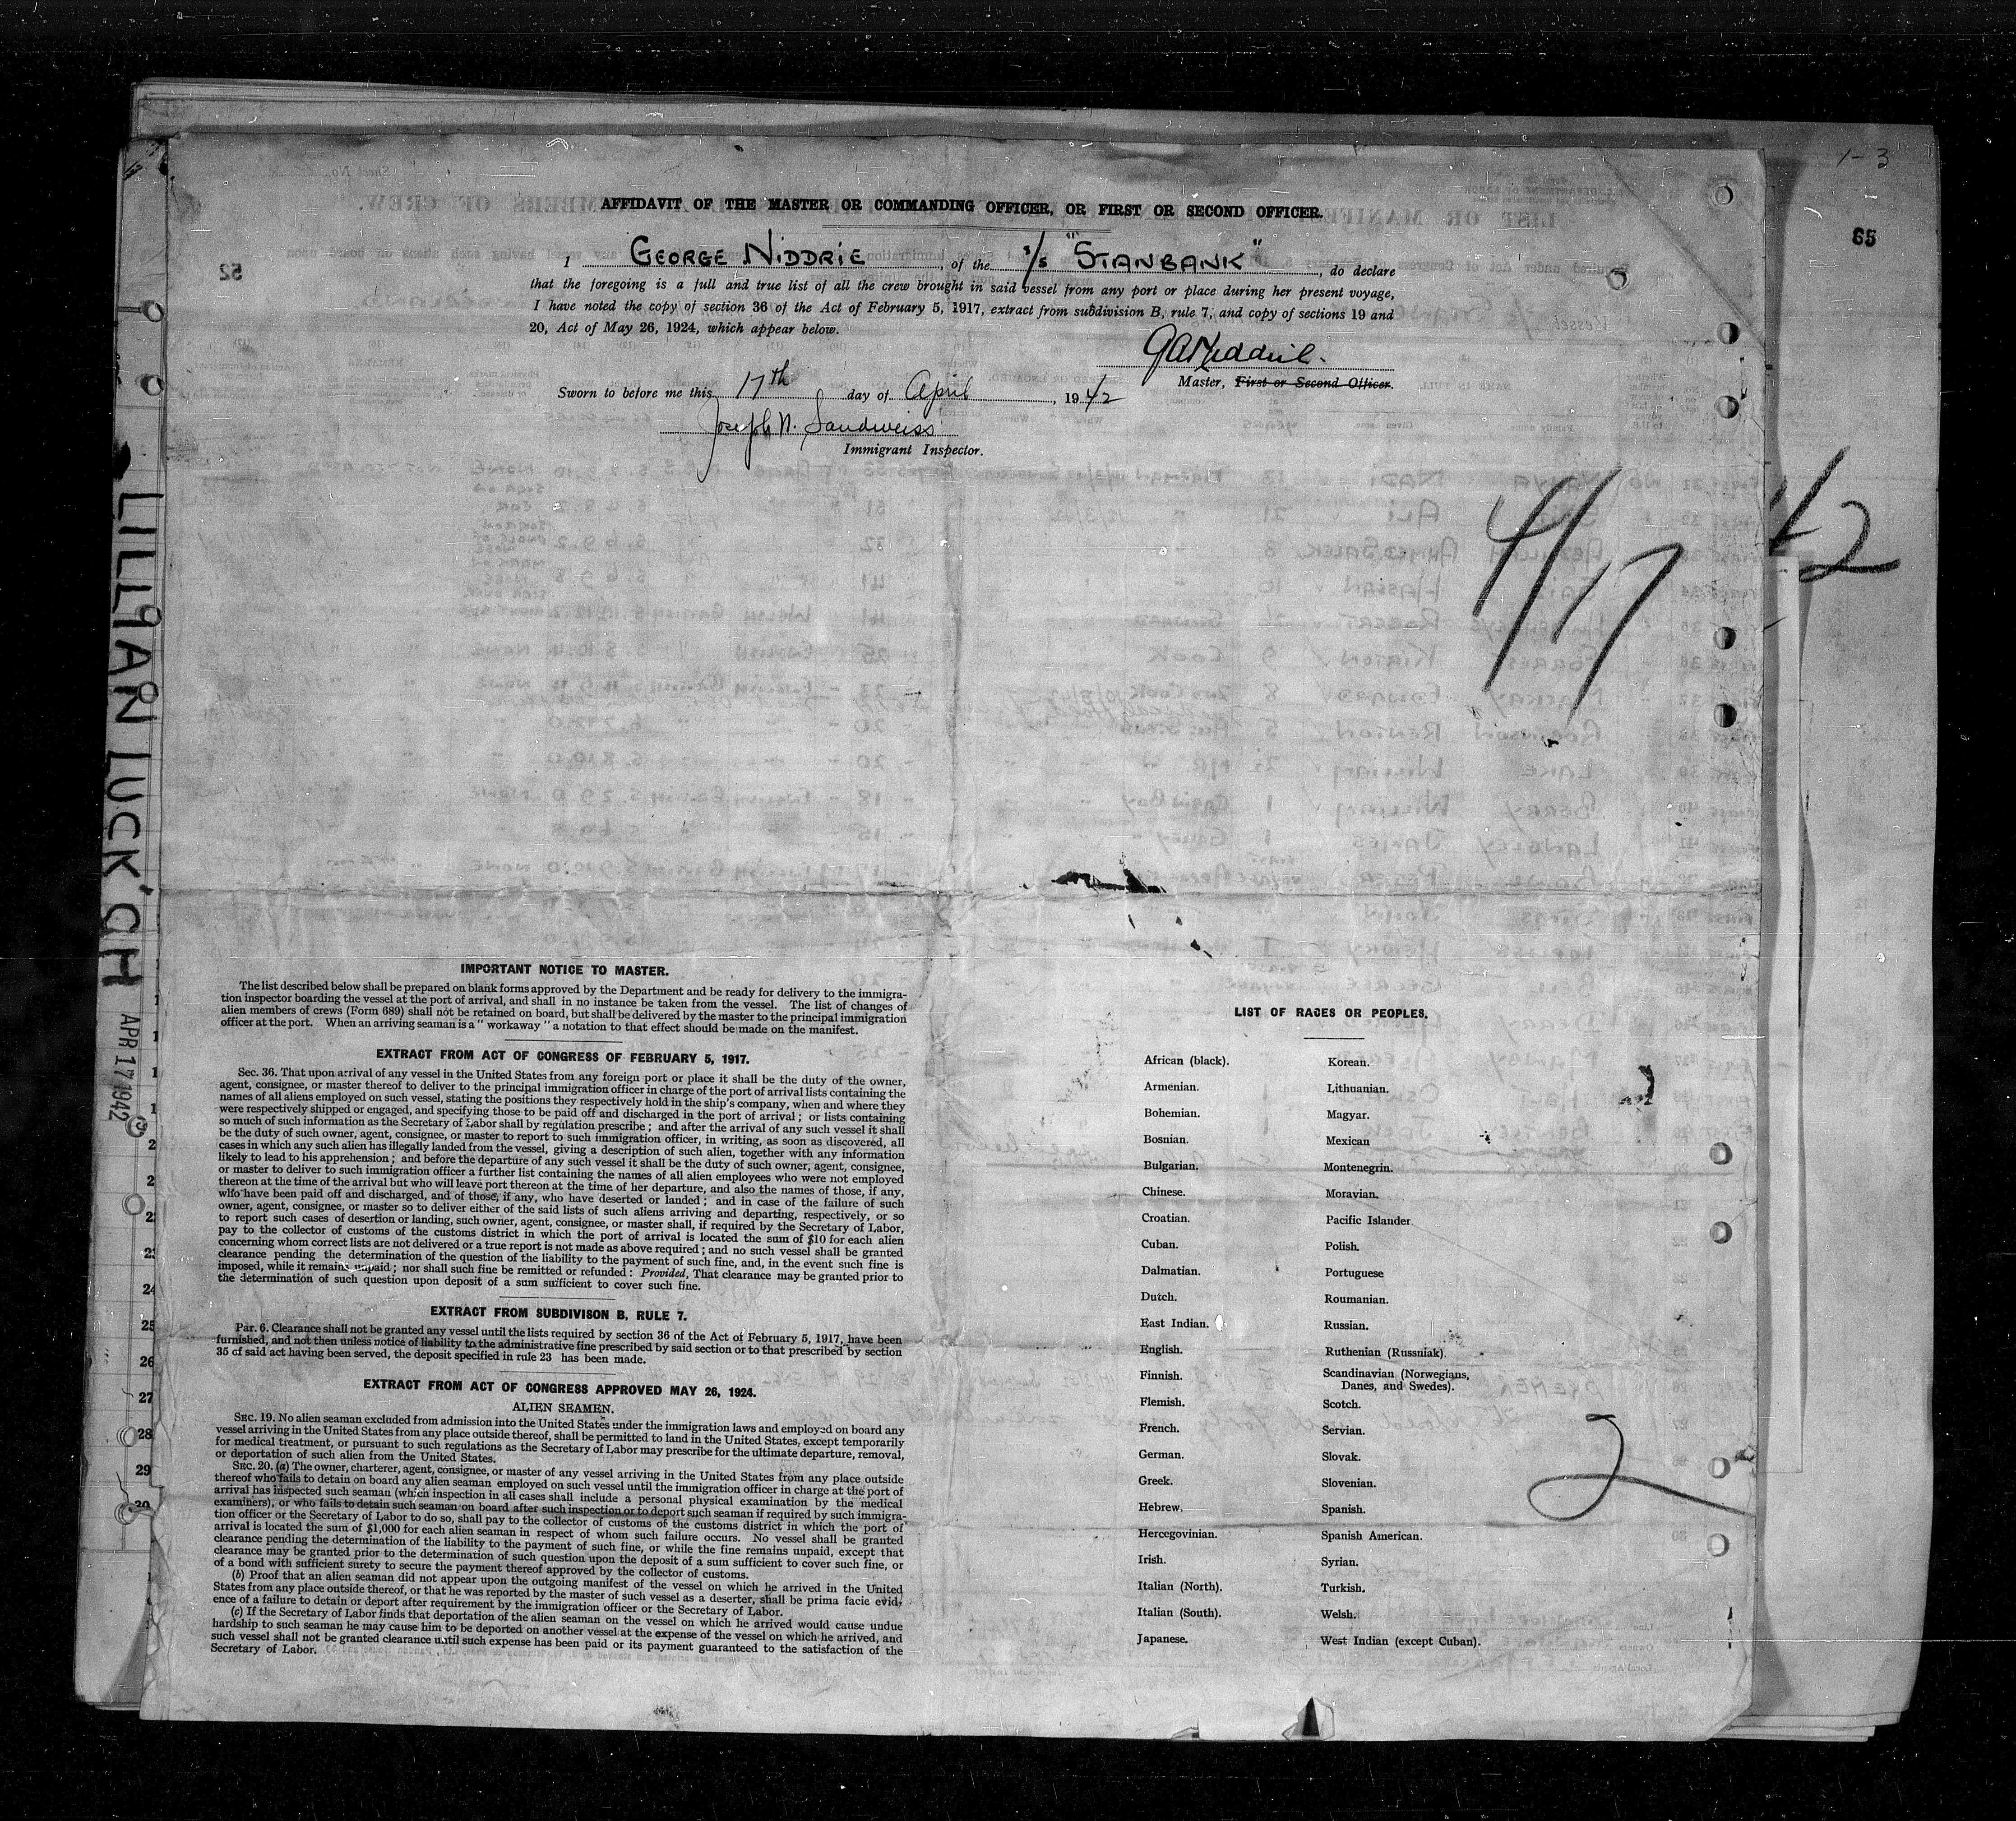 1-3
65
AFFIDAVIT OF THE MASTER OR COMMANDING OFFICER, OR FIRST OR SECOND OFFICER.
I GEORGE NIDDRIE, of the S/S "STANBANK", do declare
that the foregoing is a full and true list of all the crew brought in said vessel from any port or place during her present voyage,
I have noted the copy of section 36 of the Act of February 5, 1917, extract from subdivision B, rule 7, and copy of sections 19 and
20, Act of May 26, 1924, which appear below.
Master, First or Second Officer.
Sworn to before me this 17th day of April, 1942
Joseph N. Sandweiss
Immigrant Inspector.
4/17/42
LILLIAN LUCK'CH APR 17 1942
IMPORTANT NOTICE TO MASTER.
The list described below shall be prepared on blank forms approved by the Department and be ready for delivery to the immigra-
tion inspector boarding the vessel at the port of arrival, and shall in no instance be taken from the vessel. The list of changes of
alien members of crews (Form 689) shall not be retained on board, but shall be delivered by the master to the principal immigration
officer at the port. When an arriving seaman is a "workaway" a notation to that effect should be made on the manifest.
EXTRACT FROM ACT OF CONGRESS OF FEBRUARY 5, 1917.
Sec. 36. That upon arrival of any vessel in the United States from any foreign port or place it shall be the duty of the owner,
agent, consignee, or master thereof to deliver to the principal immigration officer in charge of the port of arrival lists containing the
names of all aliens employed on such vessel, stating the positions they respectively hold in the ship's company, when and where they
were respectively shipped or engaged, and specifying those to be paid off and discharged in the port of arrival; or lists containing
so much of such information as the Secretary of Labor shall by regulation prescribe; and after the arrival of any such vessel it shall
be the duty of such owner, agent, consignee, or master to report to such immigration officer, in writing, as soon as discovered, all
cases in which any such alien has illegally landed from the vessel, giving a description of such alien, together with any information
likely to lead to his apprehension; and before the departure of any such vessel it shall be the duty of such owner, agent, consignee,
or master to deliver to such immigration officer a further list containing the names of all alien employees who were not employed
thereon at the time of the arrival but who will leave port thereon at the time of her departure, and also the names of those, if any,
who have been paid off and discharged, and of those, if any, who have deserted or landed; and in case of the failure of such
owner, agent, consignee, or master so to deliver either of the said lists of such aliens arriving and departing, respectively, or so
to report such cases of desertion or landing, such owner, agent, consignee, or master shall, if required by the Secretary of Labor,
pay to the collector of customs of the customs district in which the port of arrival is located the sum of $10 for each alien
concerning whom correct lists are not delivered or a true report is not made as above required; and no such vessel shall be granted
clearance pending the determination of the question of the liability to the payment of such fine, and, in the event such fine is
imposed, while it remains unpaid; nor shall such fine be remitted or refunded: Provided, That clearance may be granted prior to
the determination of such question upon deposit of a sum sufficient to cover such fine.
EXTRACT FROM SUBDIVISON B, RULE 7.
Par. 6. Clearance shall not be granted any vessel until the lists required by section 36 of the Act of February 5, 1917, have been
furnished, and not then unless notice of liability to the administrative fine prescribed by said section or to that prescribed by section
35 of said act having been served, the deposit specified in rule 23 has been made.
EXTRACT FROM ACT OF CONGRESS APPROVED MAY 26, 1924.
ALIEN SEAMEN.
Sec. 19. No alien seaman excluded from admission into the United States under the immigration laws and employed on board any
vessel arriving in the United States from any place outside thereof, shall be permitted to land in the United States, except temporarily
for medical treatment, or pursuant to such regulations as the Secretary of Labor may prescribe for the ultimate departure, removal,
or deportation of such alien from the United States.
Sec. 20. (a) The owner, charterer, agent, consignee, or master of any vessel arriving in the United States from any place outside
thereof who fails to detain on board any alien seaman employed on such vessel until the immigration officer in charge at the port of
arrival has inspected such seaman (which inspection in all cases shall include a personal physical examination by the medical
examiners), or who fails to detain such seaman on board after such inspection or to deport such seaman if required by such immigra-
tion officer or the Secretary of Labor to do so, shall pay to the collector of customs of the customs district in which the port of
arrival is located the sum of $1,000 for each alien seaman in respect of whom such failure occurs. No vessel shall be granted
clearance pending the determination of the liability to the payment of such fine, or while the fine remains unpaid, except that
clearance may be granted prior to the determination of such question upon the deposit of a sum sufficient to cover such fine, or
of a bond with sufficient surety to secure the payment thereof approved by the collector of customs.
(b) Proof that an alien seaman did not appear upon the outgoing manifest of the vessel on which he arrived in the United
States from any place outside thereof, or that he was reported by the master of such vessel as a deserter, shall be prima facie evid-
ence of a failure to detain or deport after requirement by the immigration officer or the Secretary of Labor.
(c) If the Secretary of Labor finds that deportation of the alien seaman on the vessel on which he arrived would cause undue
hardship to such seaman he may cause him to be deported on another vessel at the expense of the vessel on which he arrived, and
such vessel shall not be granted clearance until such expense has been paid or its payment guaranteed to the satisfaction of the
Secretary of Labor.
LIST OF RACES OR PEOPLES.
African (black). Korean.
Armenian. Lithuanian.
Bohemian. Magyar.
Bosnian. Mexican
Bulgarian. Montenegrin.
Chinese. Moravian.
Croatian. Pacific Islander
Cuban. Polish.
Dalmatian. Portuguese
Dutch. Roumanian.
East Indian. Russian.
English. Ruthenian (Russniak).
Finnish. Scandinavian (Norwegians,
Danes, and Swedes).
Flemish. Scotch.
French. Servian.
German. Slovak.
Greek. Slovenian.
Hebrew. Spanish.
Hercegovinian. Spanish American.
Irish. Syrian.
Italian (North). Turkish.
Italian (South). Welsh.
Japanese. West Indian (except Cuban).
2
24
25
26
27
28
29
30